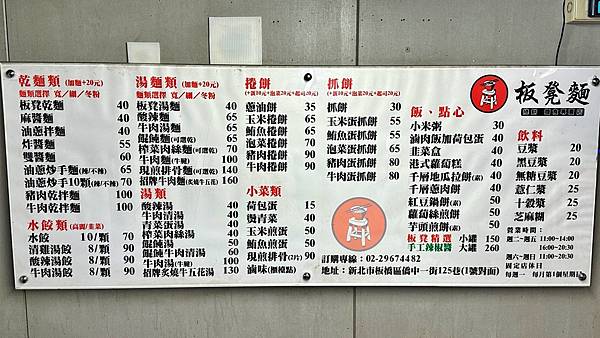 乾麵類 (加麵+20元)
麵類選擇 寬/細/冬粉
板凳乾麵 40
麻醬麵 40
油蔥拌麵 40
炸醬麵 55
雙醬麵 60
油蔥炒手麵(辣/不辣) 65
油蔥炒手10顆(辣/不辣) 70
豬肉乾拌麵 90
牛肉乾拌麵 90
水餃類 (高麗/韭菜)
水餃 10/顆 70
清雞湯餃 8/顆 90
酸辣湯餃 8/顆 90
牛肉湯餃 8/顆 90
湯麵類 (加麵+20元)
麵類選擇 寬/細/冬粉
板凳湯麵 40
酸辣麵 65
牛肉湯麵 65
餛飩麵(可選乾) 65
榨菜肉絲麵(可選乾) 65
牛肉麵(牛腱) 100
現煎排骨麵(可選乾) 140
招牌牛肉麵(炙燒牛五花) 160
湯類
酸辣湯 40
牛肉清湯 40
青菜蛋湯 40
榨菜肉絲湯 40
餛飩湯 50
餛飩牛肉清湯 60
牛肉湯(牛腱) 100
招牌炙燒牛五花湯 130
捲餅
(+蛋10元+泡菜20元+起司20元)
蔥油餅 35
玉米捲餅 65
鮪魚捲餅 65
泡菜捲餅 70
豬肉捲餅 90
牛肉捲餅 90
小菜類
荷包蛋 15
燙青菜 40
玉米煎蛋 50
鮪魚煎蛋 50
現煎排骨(2片) 90
滷味(櫃檯點)
抓餅
(+蛋10元+泡菜20元+起司20元)
抓餅 30
玉米蛋抓餅 55
鮪魚蛋抓餅 55
泡菜蛋抓餅 65
豬肉蛋抓餅 80
牛肉蛋抓餅 80
訂購專線：02-29674482
地址：新北市板橋區僑中一街125巷(1號對面)
飯、點心
小米粥 30
滷肉飯加荷包蛋 40
韭菜盒 40
港式蘿蔔糕 40
千層地瓜拉餅(素) 40
千層蔥肉餅 40
紅豆鍋餅(素) 50
蘿蔔絲煎餅 50
芋頭煎餅(素) 50
板凳精選 小罐 150
手工辣椒醬 大罐 260
板凳麵
飲料
豆漿 20
黑豆漿 25
無糖豆漿 20
薏仁漿 25
十穀漿 25
芝麻糊 25
營業時間：
週二~週五 11:00~14:00
16:00~20:30
週六~週日 11:00~20:30
固定店休日
每週一 每月第1個星期日